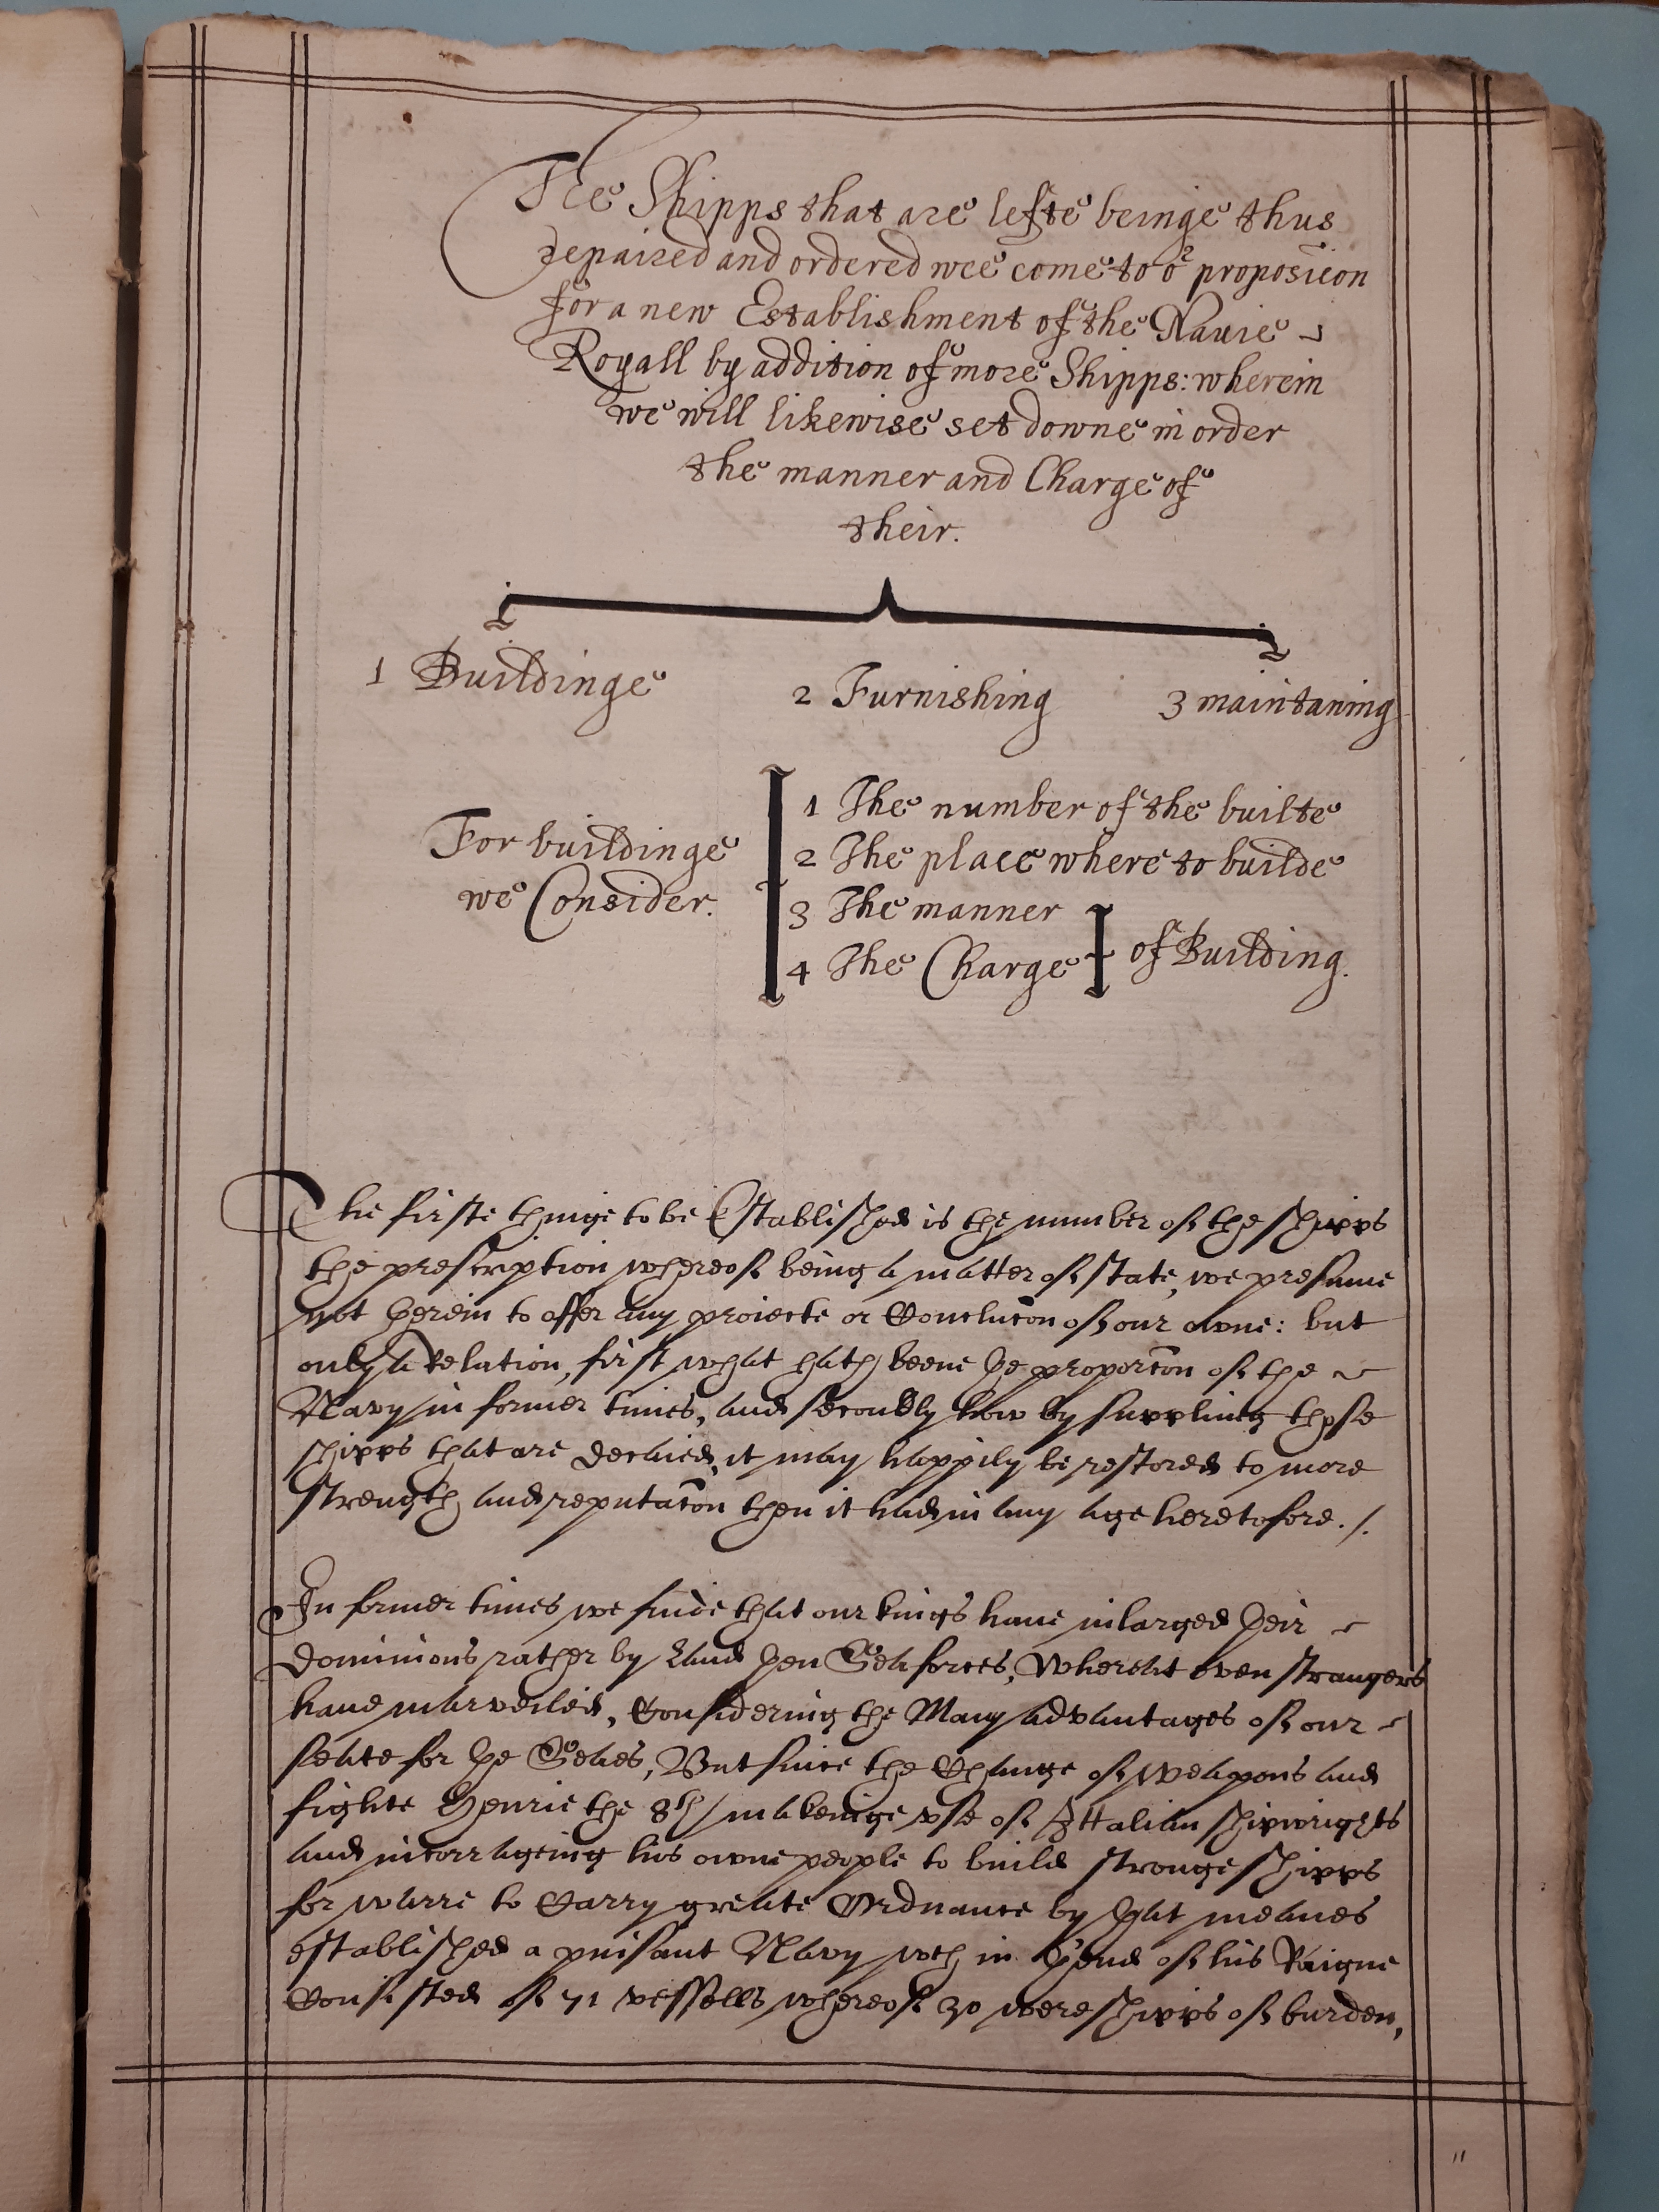 The Shipps that are lefte beinge thus
repaired and ordered wee come to or proposicon
for a new Establishment of the Navie
Royall by addition of more Shipps: wherein
we will likewise set downe in order
the manner and Charge of
their.
1 Buildinge 2 Furnishing 3 maintaning
For buildinge
we Consider.
1 The number of the builte
2 The place where to builde
3 The manner
4 The Charge
of Building.
The firste thinge to be Established is the number of the shipps
the prescription whereof being a matter of state, we presume
not herein to offer any proiecte or Conclucon of our owne: but
only a Relation, first what hath beene ye proporcon of the
Navy in former times, and secondly how by suppling those
shipps that are decaied, it may happily be restored to more
strength and reputacon then it had in any age heretofore ./.
In former times we finde that our kings haue inlarged yeir
dominions rather by Land yen Sea forces, Whereat even strangers
haue marveiled, Considering the Many advantages of our
seate for ye Seaes, But since the Change of weapons and
fighte Henrie the 8th makeinge vse of Ittalian shipwrights
and incorrageing his owne people to build stronge shipps
for warre to Carry greate Ordnance by yat meanes
established a puisant Navy wch in yend of his Raigne
Consisted of 71 vessells whereof 30 were shipps of burden,
"